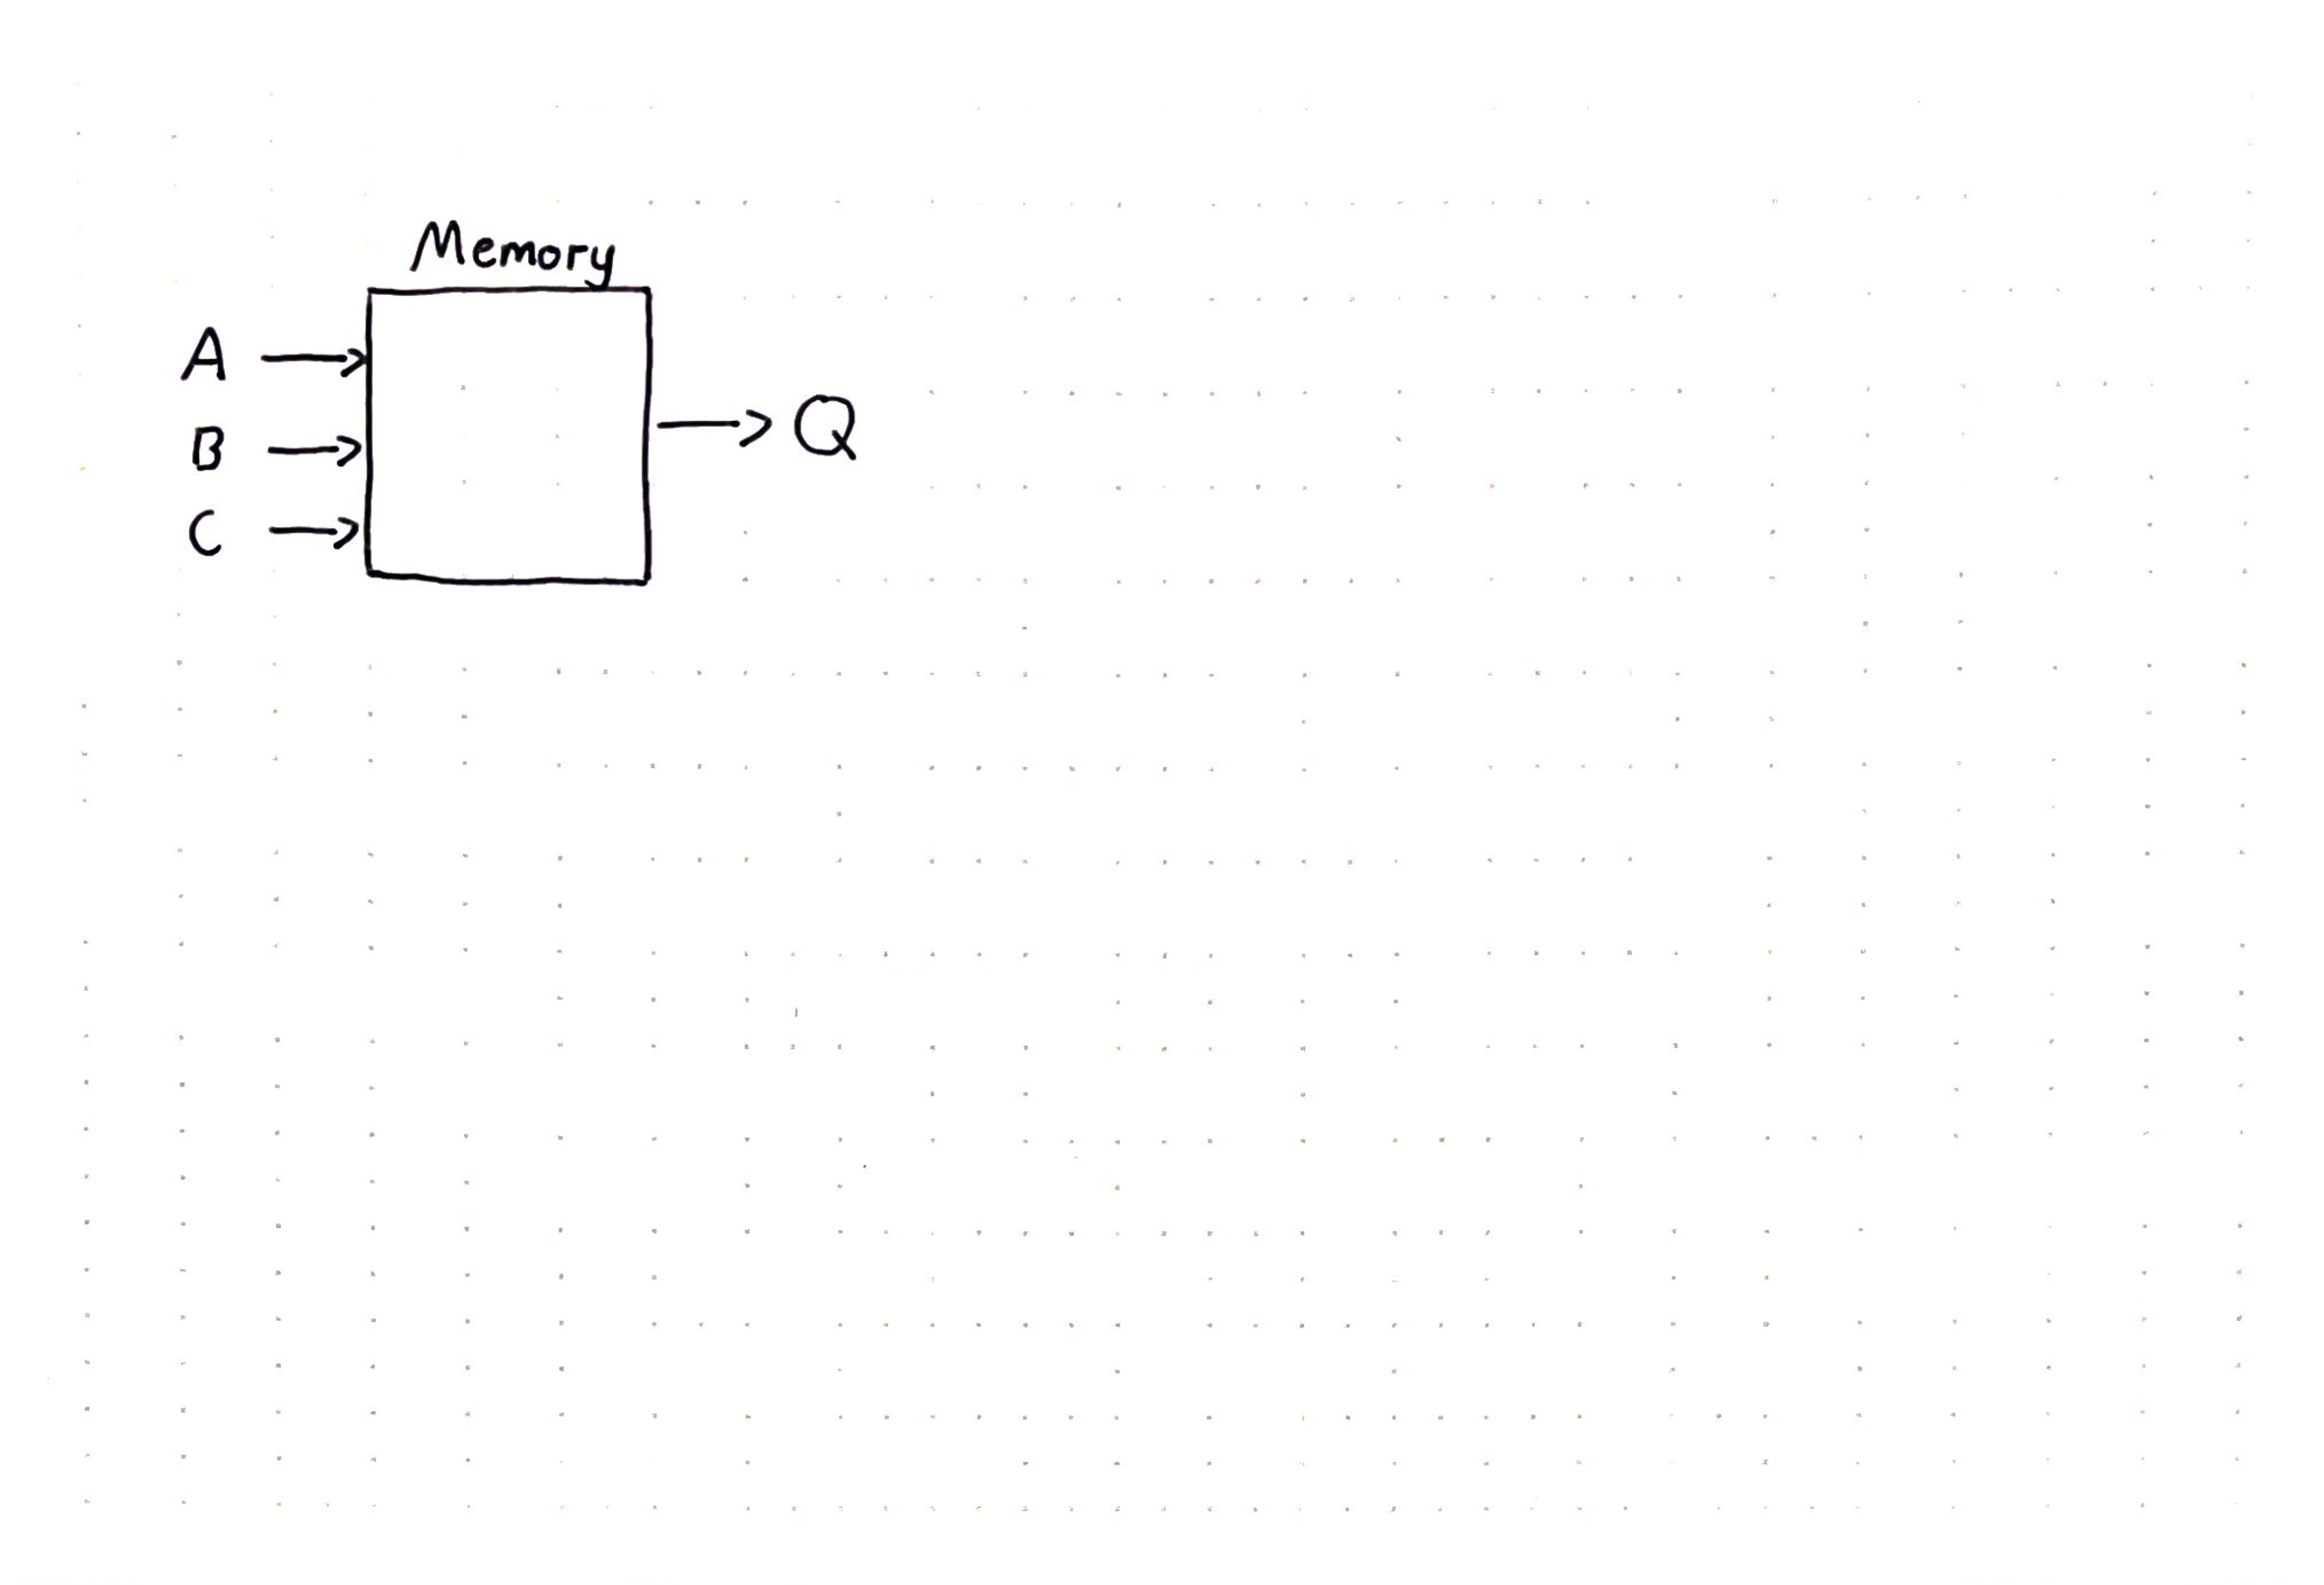 Memory
A
B
C
Q